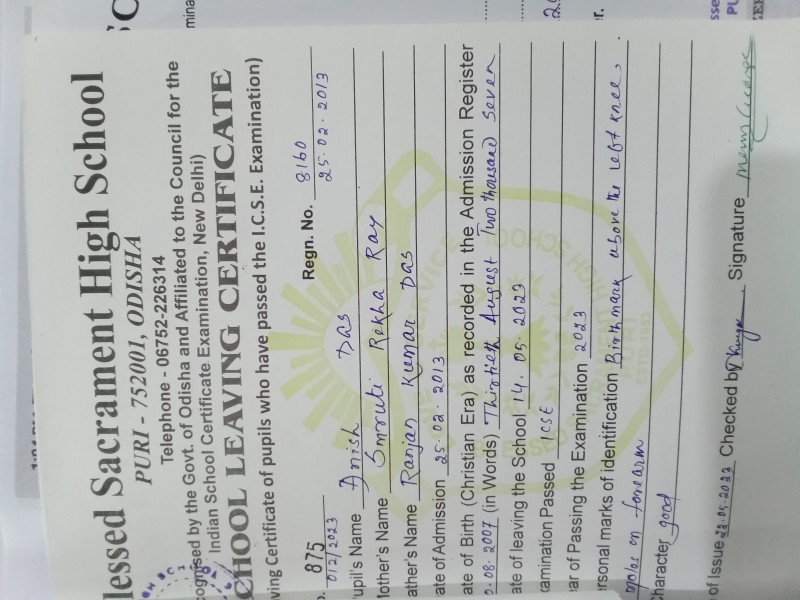 lessed Sacrament High School
PURI - 752001, ODISHA
Telephone - 06752-226314
cognised by the Govt. of Odisha and Affiliated to the Council for the
Indian School Certificate Examination, New Delhi)
CHOOL LEAVING CERTIFICATE
ving Certificate of pupils who have passed the I.C.S.E. Examination)
875
012/2023
Regn. No. 8160
25.02.2013
upil's Name Anish Das
other's Name Smruti Rekha Ray
ather's Name Ranjan Kumar Das
ate of Admission 25.02.2013
ate of Birth (Christian Era) as recorded in the Admission Register
0.08.2007 (in Words) Thirtieth August Two thousand Seven
ate of leaving the School 14.05.2023
xamination Passed ICSE
ar of Passing the Examination 2023
rsonal marks of identification Birthmark above the left knee,
moles on forearm
haracter good
of Issue 22.05.2023 Checked by Signature